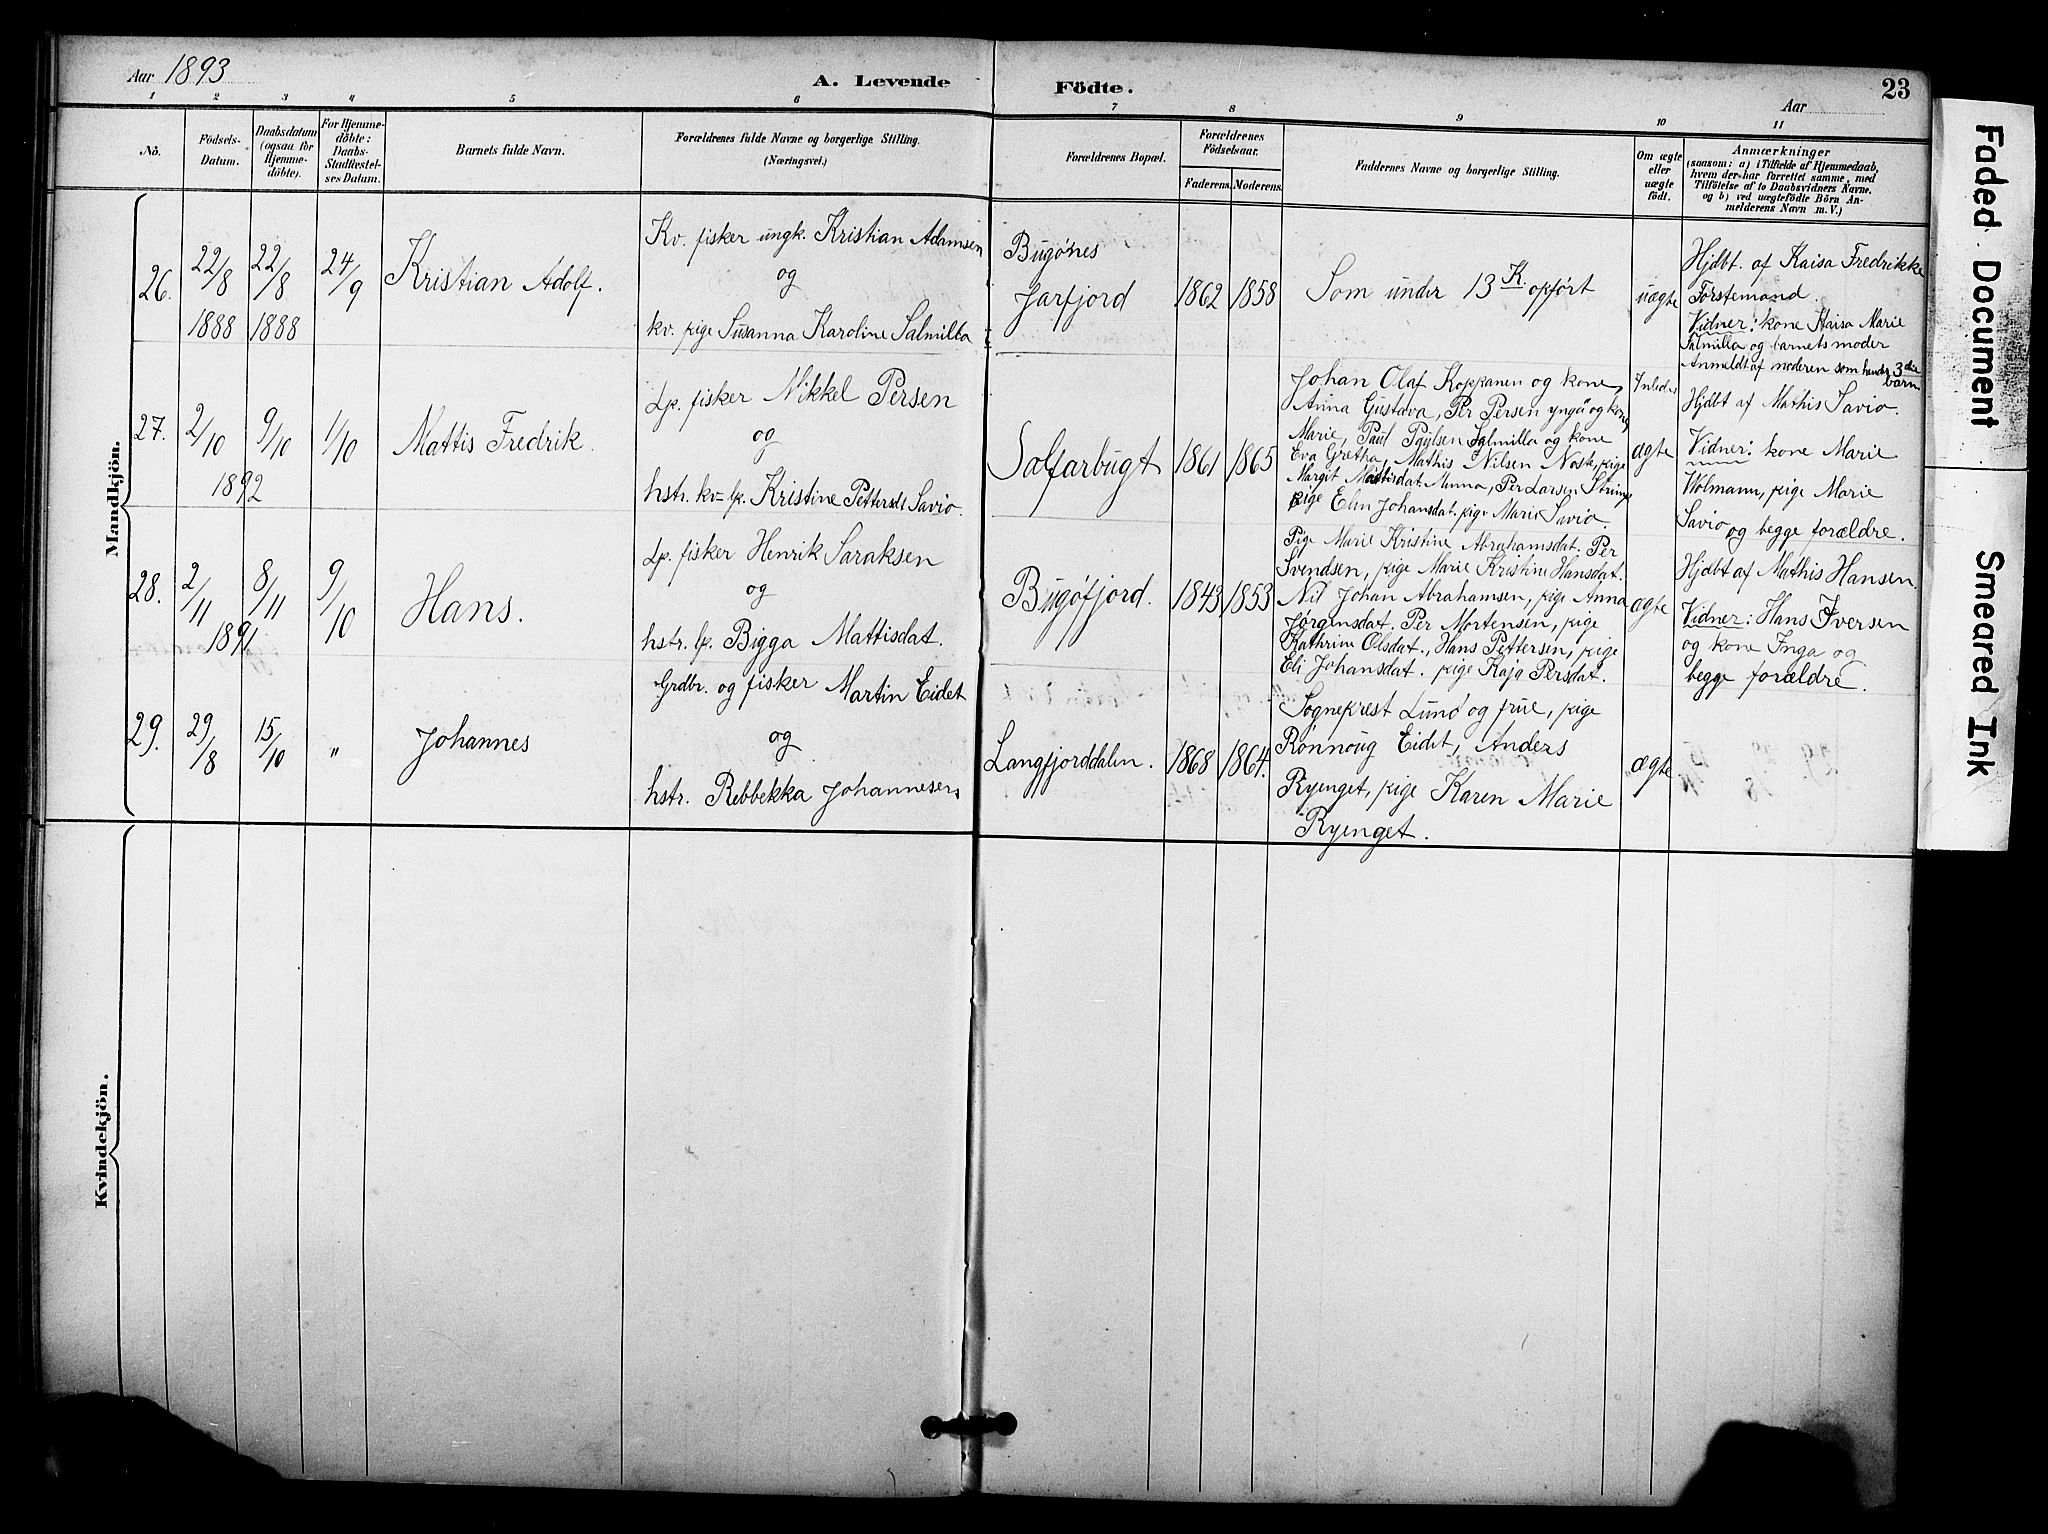 Aar 1893
A. Levende Födte.
Aar
23
1 2 3 4 5 6 7 8 9 10 11
No.
Födsels-Datum.
Daabsdatum (ogsaa for Hjemmedöbte).
For Hjemmedöbte: Daabs-Stadfæstelses Datum.
Barnets fulde Navn.
Forældrenes fulde Navne og borgerlige Stilling.
(Næringsvei.)
Forældrenes Bopæl.
Forældrenes Födselsaar.
Faderens. Moderens.
Faddernes Navne og borgerlige Stilling.
Om ægte eller uægte födt.
Anmærkninger
(saasom: a) i Tilfælde af Hjemmedaab,
hvem der har forrettet samme, med
Tilföielse af to Daabsvidners Navne.
og b) ved uægtefödte Börn Anmelderens Navn m. V.)
Mandkjön.
26.
22/8 1888
22/8 1888
24/9
Kristian Adolf.
Kv. fisker ungk. Kristian Adamsen
og
kv. pige Susanna Karoline Salmilla
Bugönes
Jarfjord
1862
1858
Som under 13 K. opført
uægte
Hjdbt. af Kaisa Fredrikke
Förstemand.
Vidner: kone Kaisa Marie
Salmilla og barnets moder
Anmeldt af moderen som hendes 3die
barn
27.
2/10
9/10
1892
1/10
Mattis Fredrik.
Lp. fisker Nikkel Persen
og
hstr. kv-lp. Kristine Pettersdt Savio.
Salfarbugt
1861
1865
Johan Olaf Koppanen og kone
Anna Gustava, Per Persen yngd og kone
Marie, Paul Paulsen Salmilla og kone
Eva Gretha, Mathis Nilsen Noste, pige
Margit Mattisdat. Minna, Per Larsen
pige Elen Johansdat. pige Marie Savio.
ægte
Hjdbt af Mathis Savio.
Vidner: kone Marie
Wolmann, pige Marie
Savio og begge forældre.
28.
2/11
8/11
1891
9/10
Hans.
Lp. fisker Henrik Saraksen
og
hstr. lp. Bigga Mattisdat.
Bugöfjord.
1843
1853
Pige Marie Kristine Abrahamsdat. Per
Svendsen, pige Marie Kristine Hansdat.
Nil Johan Abrahamsen, pige Anna
Jörgensdat. Per Mortensen, pige
Kathrine Olsdat., Hans Pettersen, pige
Eli Johansdat. pige Kaja Persdat.
ægte
Hjdbt af Mathis Hansen.
Vidner: Hans Iversen
og kone Inga og
begge forældre.
29.
29/8
15/10
"
Johannes
Grdbr. og fisker Martin Eidet
og
hstr. Rebbekka Johannesen
Langfjorddalen.
1868
1864.
Sogneprest Lund og frue, pige
Rönnoug Eidet, Anders
Ryenget, pige Karen Marie
Ryenget.
ægte
Kvindekjön.
Faded Document
Smeared Ink